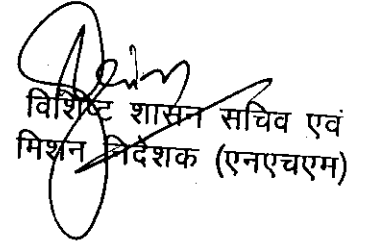 विशिष्ट शासन सचिव एवं
मिशन निदेशक (एनएचएम)